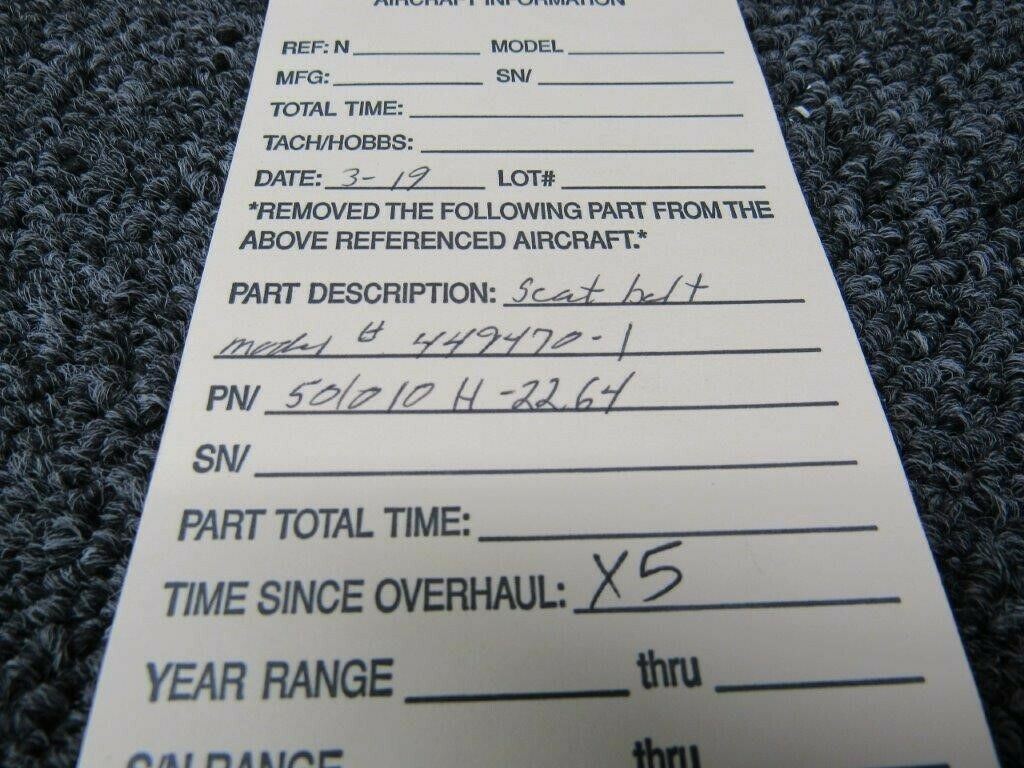 AIRCRAFT INFORMATION
REF: N MODEL
MFG: SN/
TOTAL TIME:
TACH/HOBBS:
DATE: 3-19 LOT#
*REMOVED THE FOLLOWING PART FROM THE
ABOVE REFERENCED AIRCRAFT.*
PART DESCRIPTION: Seat belt
model # 449470-1
PN/ 501010 H-2264
SN/
PART TOTAL TIME:
TIME SINCE OVERHAUL: X5
YEAR RANGE thru
S/N RANGE thru